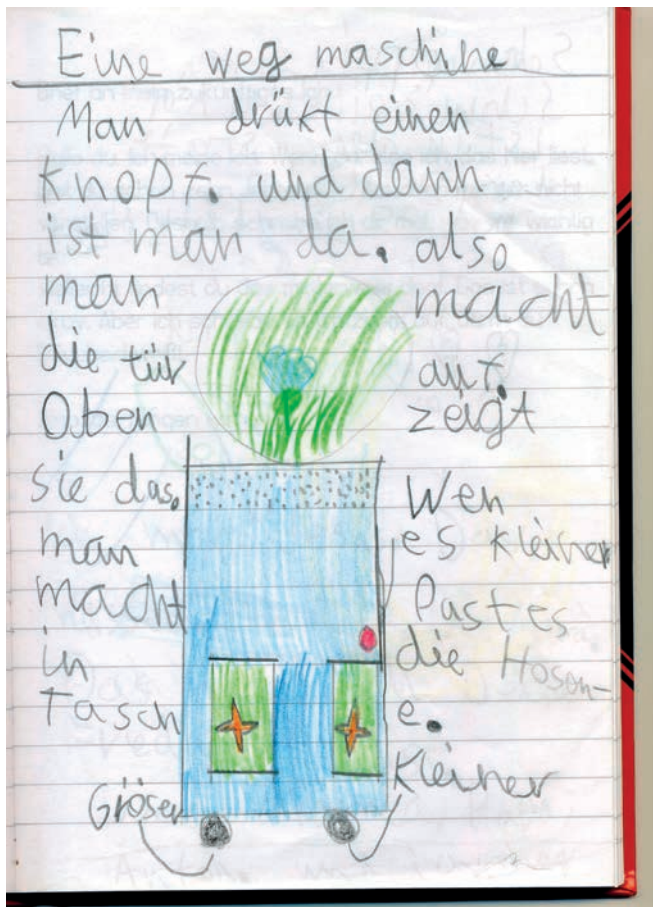 Eine weg maschine
Man drükt einen
Knopf. und dann
ist man da. also
man macht
die tür auf.
Oben zeigt
sie das. Wen
man es kleiner
macht Past es
in die Hosen-
Tasch e.
Gröser Kleiner